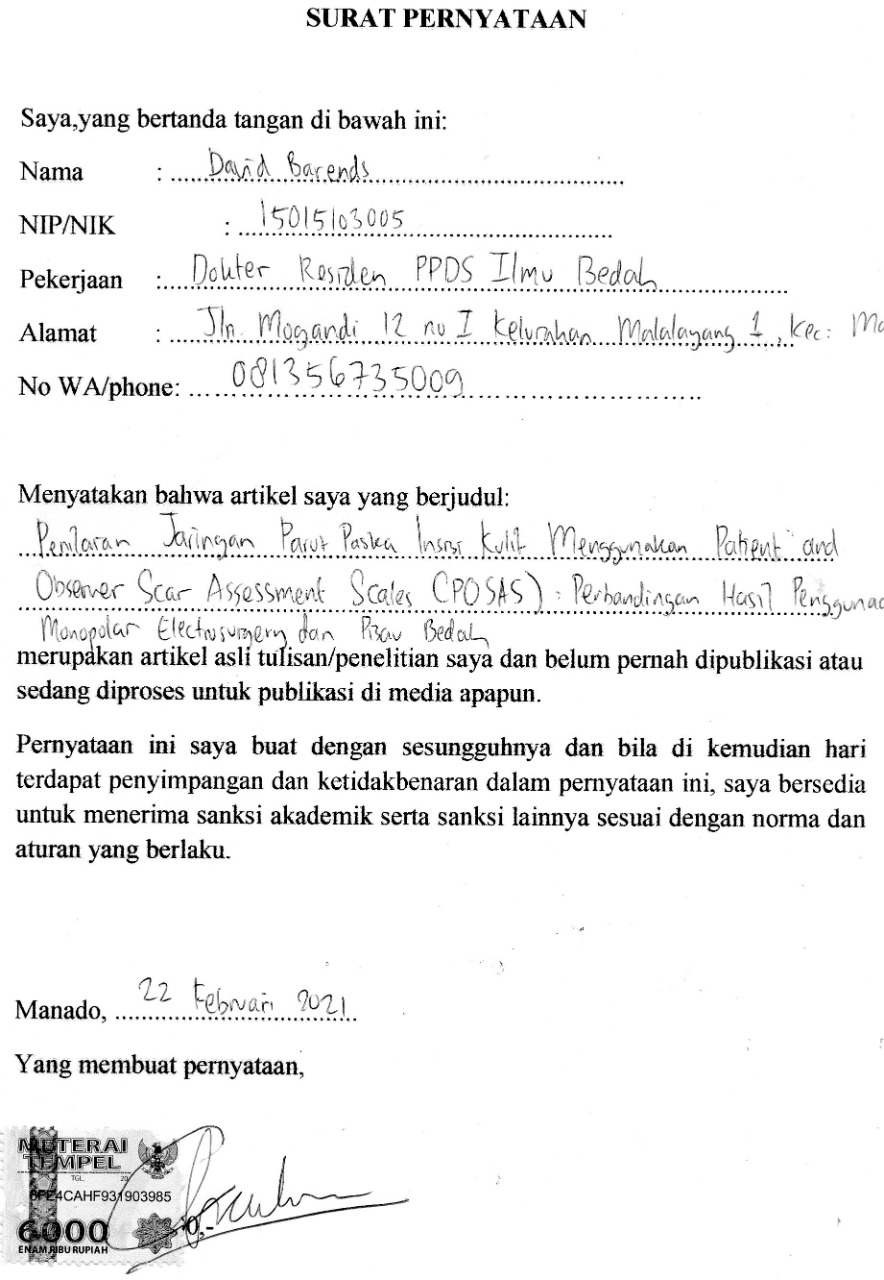 SURAT PERNYATAAN
Saya,yang bertanda tangan di bawah ini:
Nama : David Barends
NIP/NIK : 15015103005
Pekerjaan : Dokter Residen PPDS Ilmu Bedah
Alamat : Jln. Mogandi 12 no I Kelurahan Malalayang 1, Kec: Ma
No WA/phone: 081356735009
Menyatakan bahwa artikel saya yang berjudul:
Penilaian Jaringan Parut Paska Insisi Kulit Menggunakan Patient and
Observer Scar Assessment Scales (POSAS): Perbandingan Hasil Penggunaa
Monopolar Electrosurgery dan Pisau Bedah
merupakan artikel asli tulisan/penelitian saya dan belum pernah dipublikasi atau
sedang diproses untuk publikasi di media apapun.
Pernyataan ini saya buat dengan sesungguhnya dan bila di kemudian hari
terdapat penyimpangan dan ketidakbenaran dalam pernyataan ini, saya bersedia
untuk menerima sanksi akademik serta sanksi lainnya sesuai dengan norma dan
aturan yang berlaku.
Manado, 22 Februari 2021
Yang membuat pernyataan,
METERAI
TEMPEL
TGL. 20
6PE4CAHF931903985
6000
ENAM RIBU RUPIAH